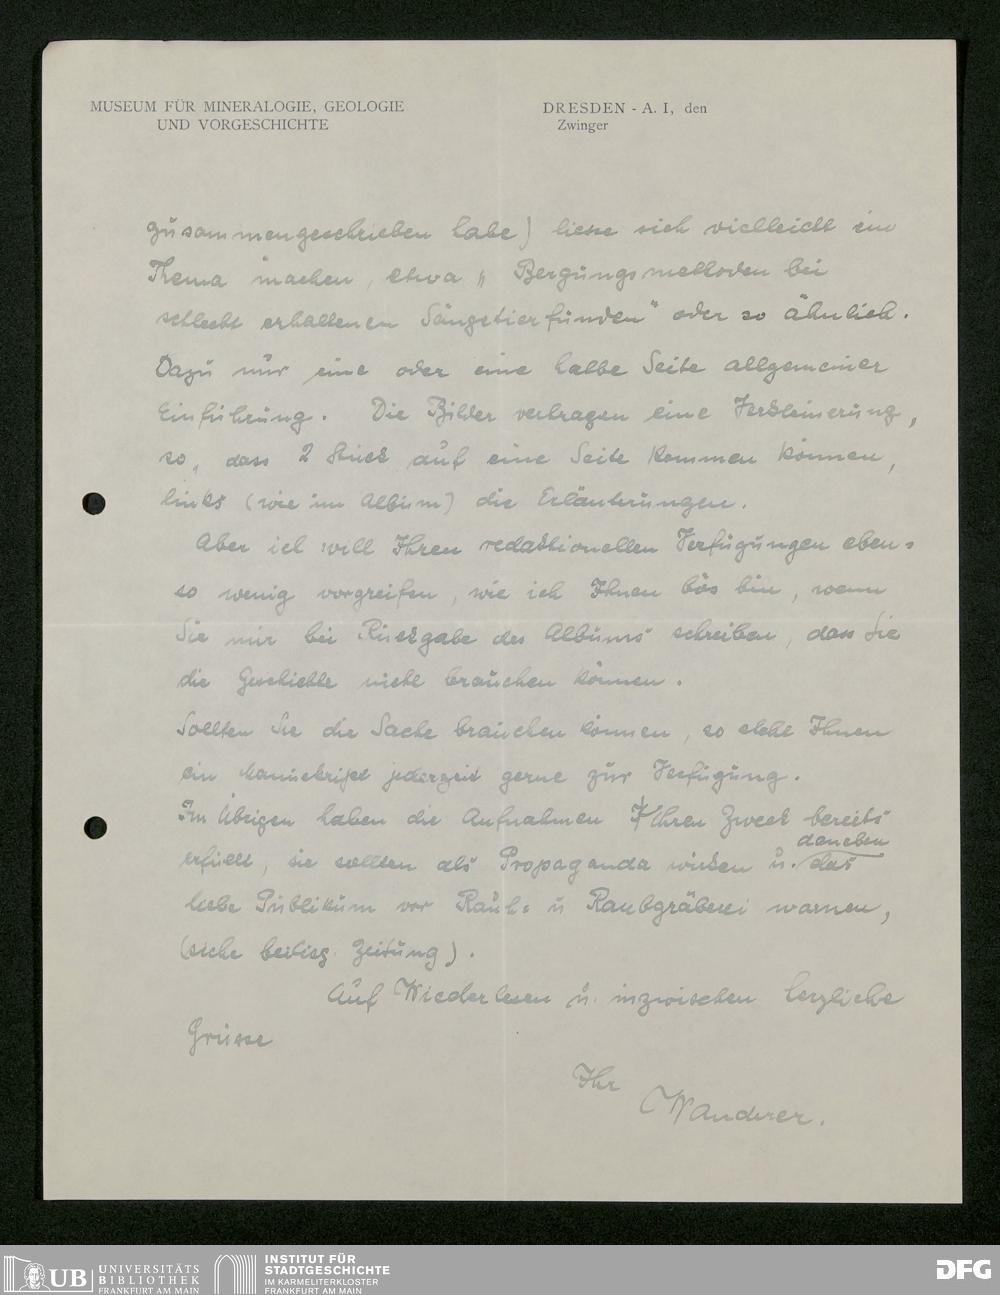 MUSEUM FÜR MINERALOGIE, GEOLOGIE
UND VORGESCHICHTE
DRESDEN - A. I, den
Zwinger
zusammengeschrieben habe) liesse sich vielleicht ein
Thema machen, etwa „Bergungsmethoden bei
schlecht erhaltenen Säugetierfunden" oder so ähnlich.
Dazu nur eine oder eine halbe Seite allgemeiner
Einführung. Die Bilder vertragen eine Verkleinerung,
so, dass 2 Stück auf eine Seite kommen können,
links (wie im Album) die Erläuterungen.
Aber ich will Ihren redaktionellen Verfügungen eben=
so wenig vorgreifen, wie ich Ihnen bös bin, wenn
Sie mir bei Rückgabe des Albums schreiben, dass Sie
die Geschichte nicht brauchen können.
Sollten Sie die Sache brauchen können, so steht Ihnen
ein Manuskript jederzeit gerne zur Verfügung.
Im Übrigen haben die Aufnahmen Ihren Zweck bereits
erfüllt, sie sollten als Propaganda wirken u. daneben das
liebe Publikum vor Raub= u Raubgräberei warnen,
(siehe beilieg. Zeitung).
Auf Wiederlesen u. inzwischen herzliche
Grüsse
Ihr
Wanderer.
UB UNIVERSITÄTS
BIBLIOTHEK
FRANKFURT AM MAIN
INSTITUT FÜR
STADTGESCHICHTE
IM KARMELITERKLOSTER
FRANKFURT AM MAIN
DFG